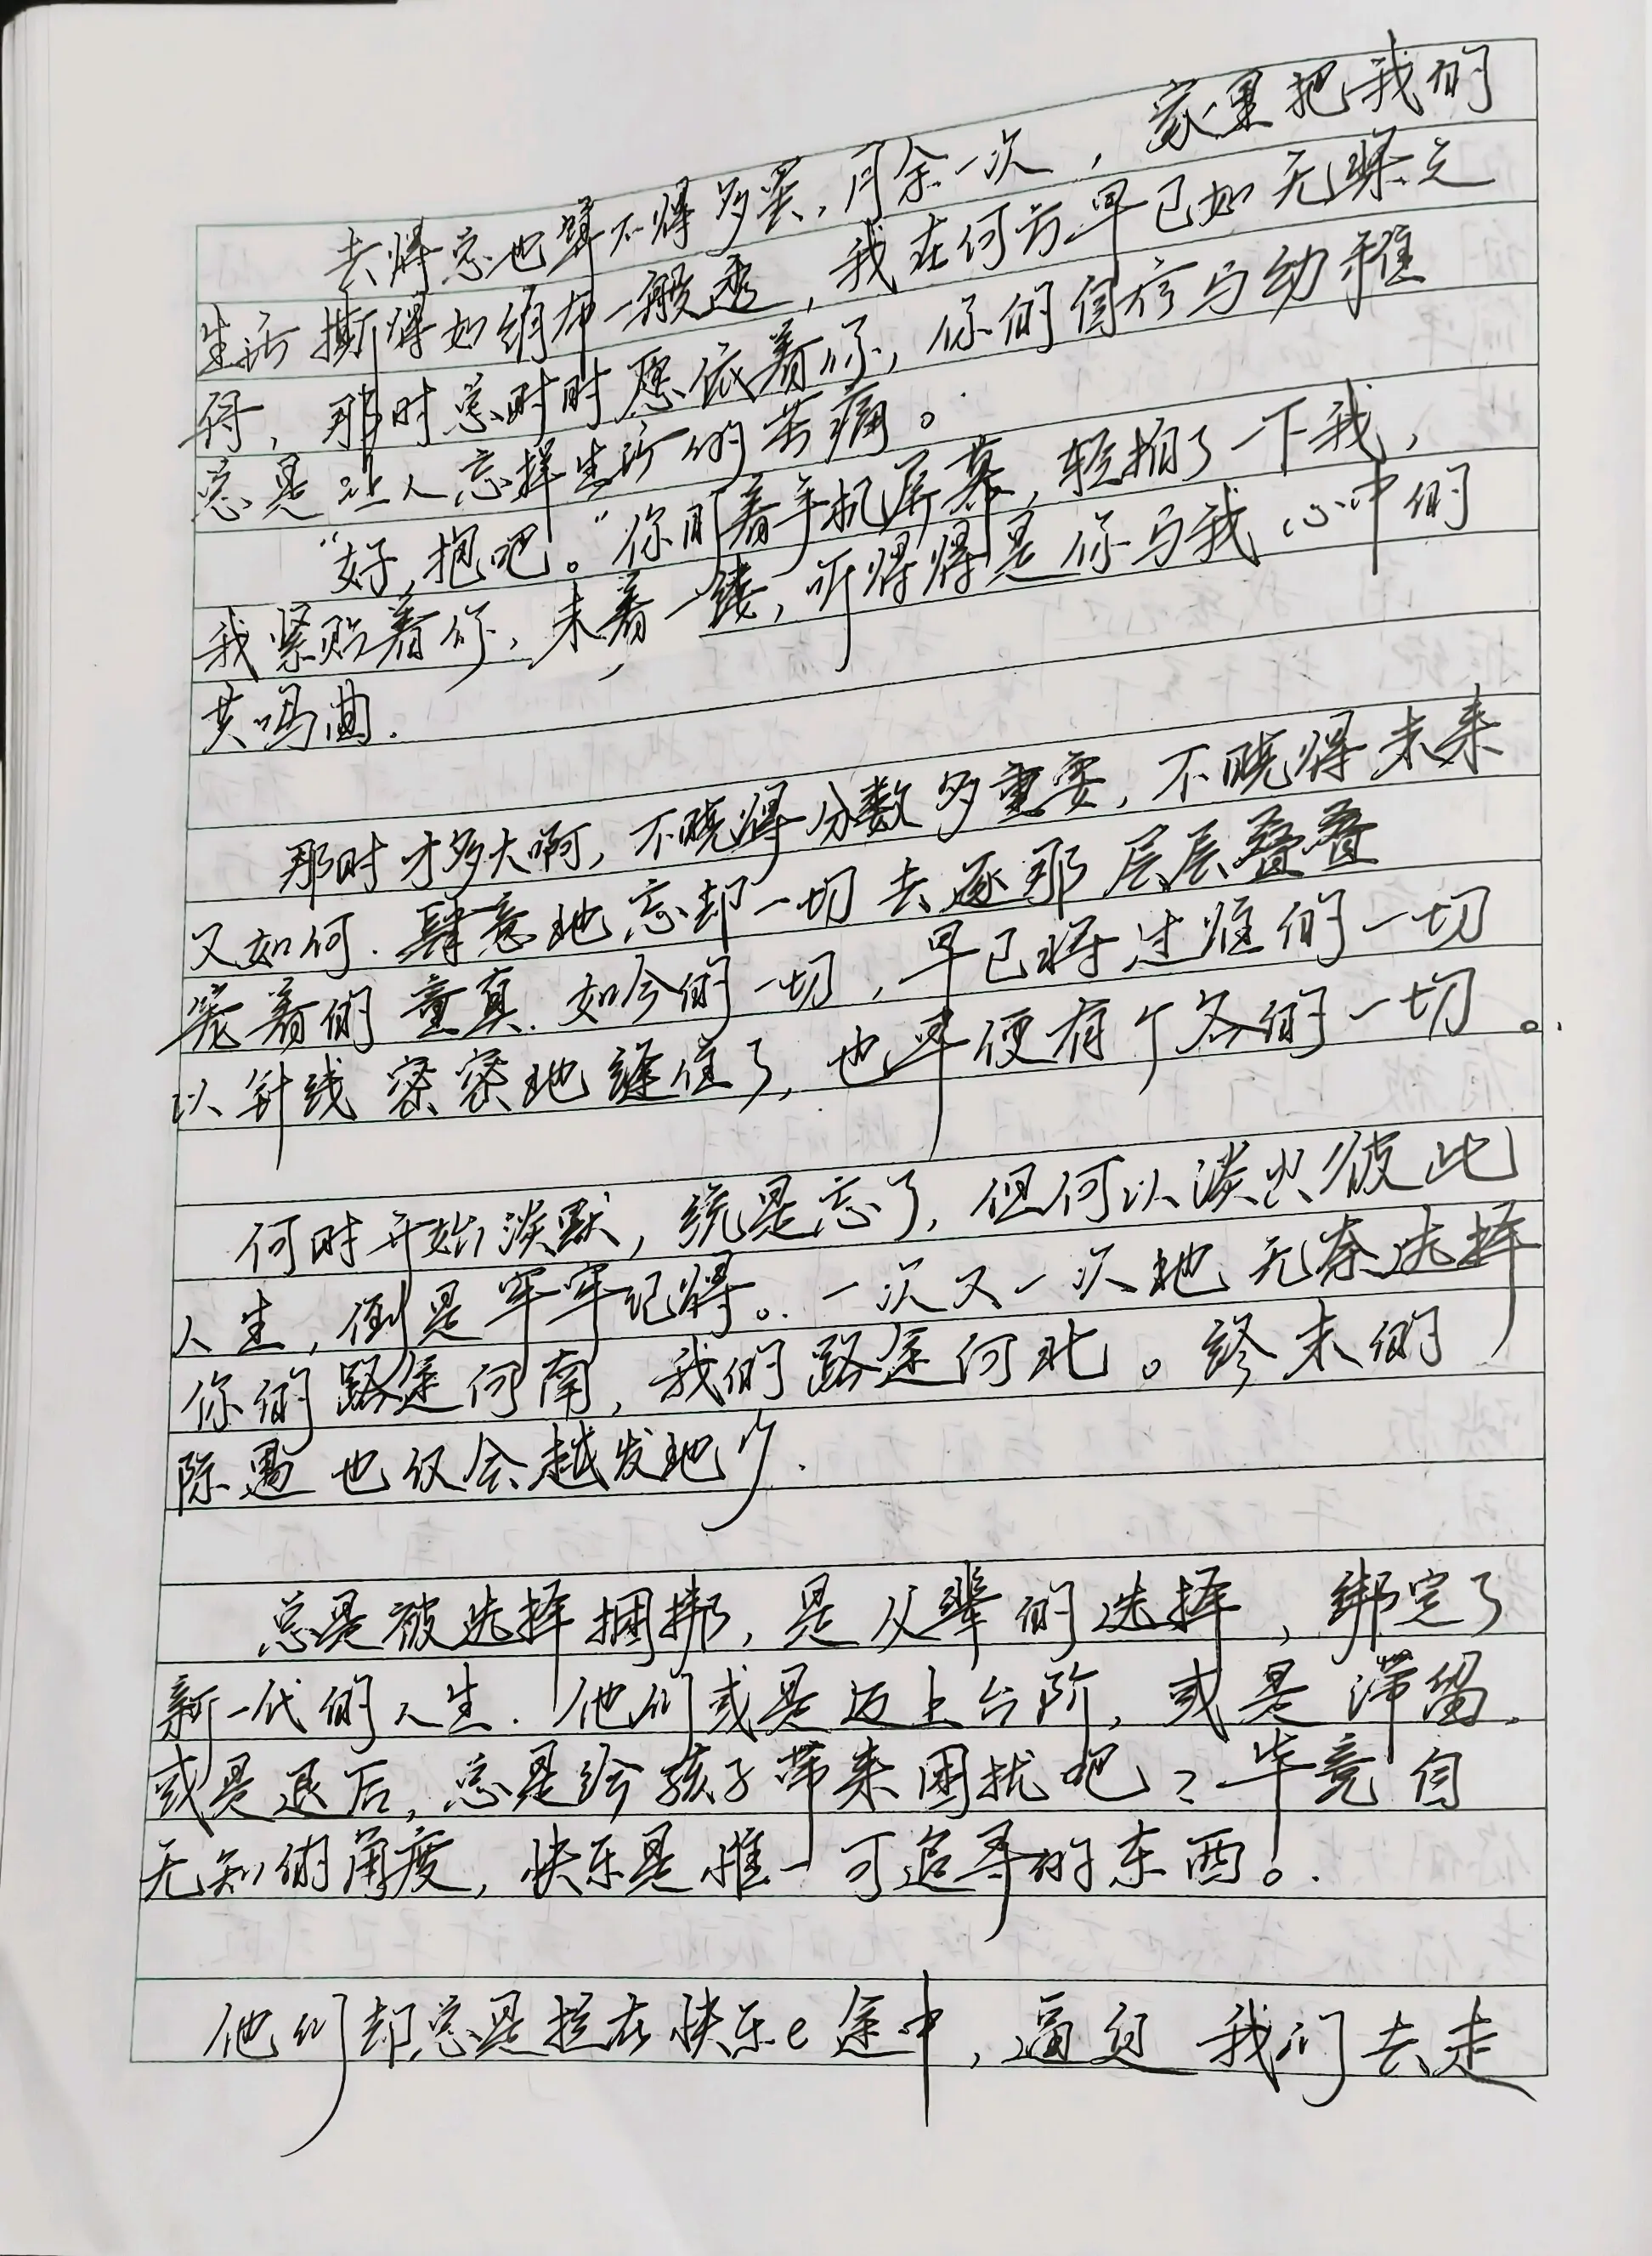 去得总也算不得多罢，月余一次，家里把我们
生活撕得如绢布一般透，我在何方早已如无踪之
得，那时总时时愿依着你，你们自
总是让人忘掉生活的苦痛。
“好，抱吧。”你盯着手机屏幕，轻拍了一下我，
我紧贴着你，未着一线，听得得是你与我心中的
共鸣曲.
那时才多大啊，不晓得分数多重要，不晓得未来
又如何.肆意地忘却一切去逐那层层叠叠
裹着的童真.如今的一切，早已将过往的一切
以针线密密地缝住了，也早便有个各的一切。
何时开始淡默，统是忘了，但何以淡出彼此
人生，倒是牢牢记得。一次又一次地无奈选择
你们路途何南，我们路途何北。终末的
际遇也仅会越发地少.
总是被选择捆绑，是父辈的选择，绑定了
新一代的人生.他们或是迈上台阶，或是滞留，
或是退后，总是给孩子带来困扰吧？毕竟自
无知的角度，快乐是惟一可追寻的东西。
他们却总是拦在快乐e途中，逼迫我们去走